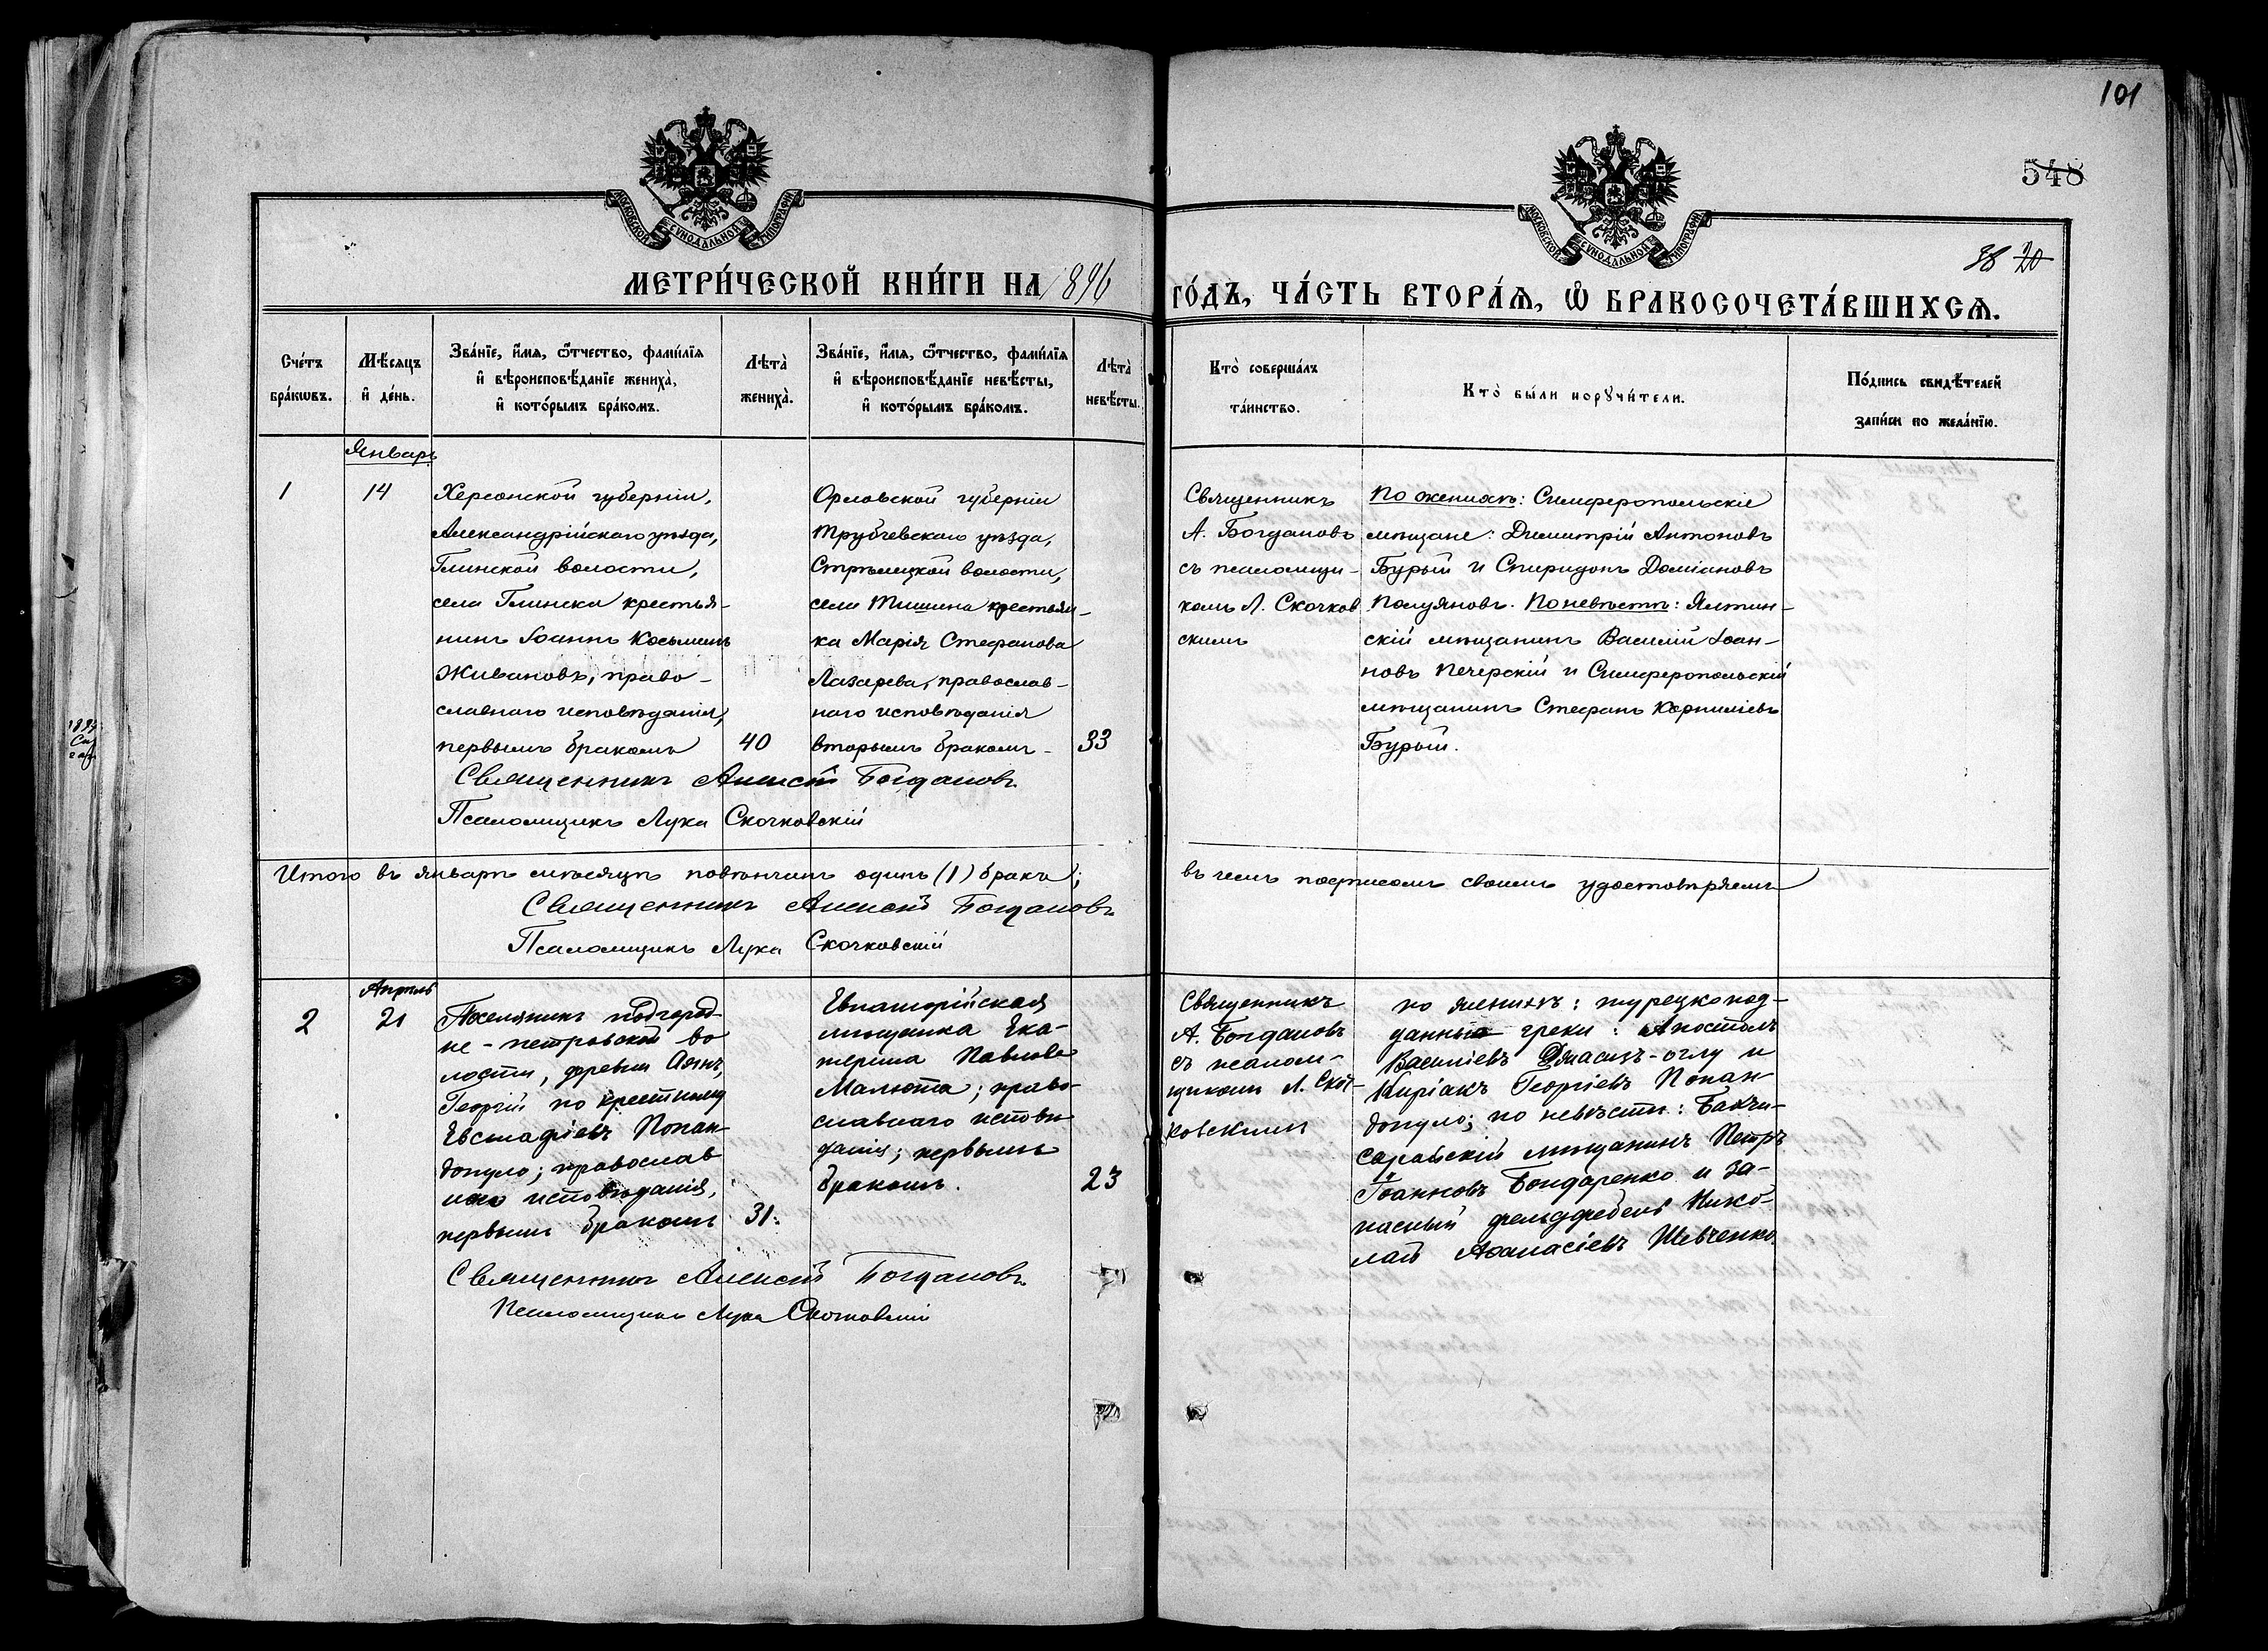 101
548
38 20
МОСКОВСКОЙ СѴНОДАЛЬНОЙ ТИПОГРАФІИ
МОСКОВСКОЙ СѴНОДАЛЬНОЙ ТИПОГРАФІИ
МЕТРИ́ЧЕСКОЙ КНИ́ГИ НА 1896
ГО́ДЪ, ЧА́СТЬ ВТОРА́Ѧ, Ѽ БРАКОСОЧЕТА́ВШИХСѦ.
Сче́тъ
бра́кѡвъ.
Мѣ́сѧцъ
и҆ де́нь.
Зва́нїе, и҆́мѧ, ѻ҆́тчество, фами́лїѧ
и҆ вѣроисповѣ́данїе жениха̀,
и҆ кото́рымъ бра́комъ.
Лѣта̀
жениха̀.
Зва́нїе, и҆́мѧ, ѻ҆́тчество, фами́лїѧ
и҆ вѣроисповѣ́данїе невѣ́сты,
и҆ кото́рымъ бра́комъ.
Лѣта̀
невѣ́сты.
Кто̀ соверша́лъ
та́инство.
Кто̀ бы́ли порꙋчи́тели.
По́дпись свидѣ́телей
за́писи по жела́нїю.
Январь
1
14
Херсонской губерніи,
Александрійскаго уѣзда,
Глинской волости,
села Глинска крестья-
нинъ Іоаннъ Косьминъ
Живановъ, право-
славнаго исповѣданія,
первымъ бракомъ
40
Орловской губерніи
Трубчевскаго уѣзда,
Стрѣлецкой волости,
села Тишина крестьян-
ка Марія Стефанова
Лазарева, православ-
наго исповѣданія
вторымъ бракомъ -
33
Священникъ
А. Богдановъ
съ псаломщи-
комъ Л. Скочков
скимъ
По женихѣ: Симферопольскіе
мѣщане: Димитрій Антоновъ
Бурый и Спиридонъ Доміановъ
Полуяновъ. По невѣстѣ: Ялтин-
скій мѣщанинъ Василій Іоан-
новъ Печерскій и Симферопольскій
мѣщанинъ Стефанъ Корниліевъ
Бурый.
Священникъ Алексій Богдановъ
Псаломщикъ Лука Скочковскій
Итого въ январѣ мѣсяцѣ повѣнчанъ одинъ (1) бракъ;
въ чемъ подписомъ своимъ удостовѣряемъ
Священникъ Алексій Богдановъ
Псаломщикъ Лука Скочковскій
Апрѣль
2
21
Поселянинъ Подгород-
не-петровской во
лости, деревни Аянъ,
Георгій по крестному
Евстафіевъ Попан-
допуло; православ
наго исповѣданія,
первымъ бракомъ
31.
Евпаторійская
мѣщанка Ека-
терина Павлова
Малюта; право-
славнаго исповѣ
данія; первымъ
бракомъ.
23
Священникъ
А. Богдановъ
съ псалом-
щикомъ Л. Скоч-
ковскимъ
по женихѣ: турецкопод-
данные греки: Апостолъ
Василіевъ -оглу и
Киріакъ Георгіевъ Попан
допуло; по невѣстѣ: Бахчи-
сарайскій мѣщанинъ Петръ
Іоанновъ Бондаренко и за-
пасный фельдфебель Нико-
лай Аѳанасіевъ Шевченко.
Священникъ Алексій Богдановъ
Псаломщикъ Лука Скочковскій